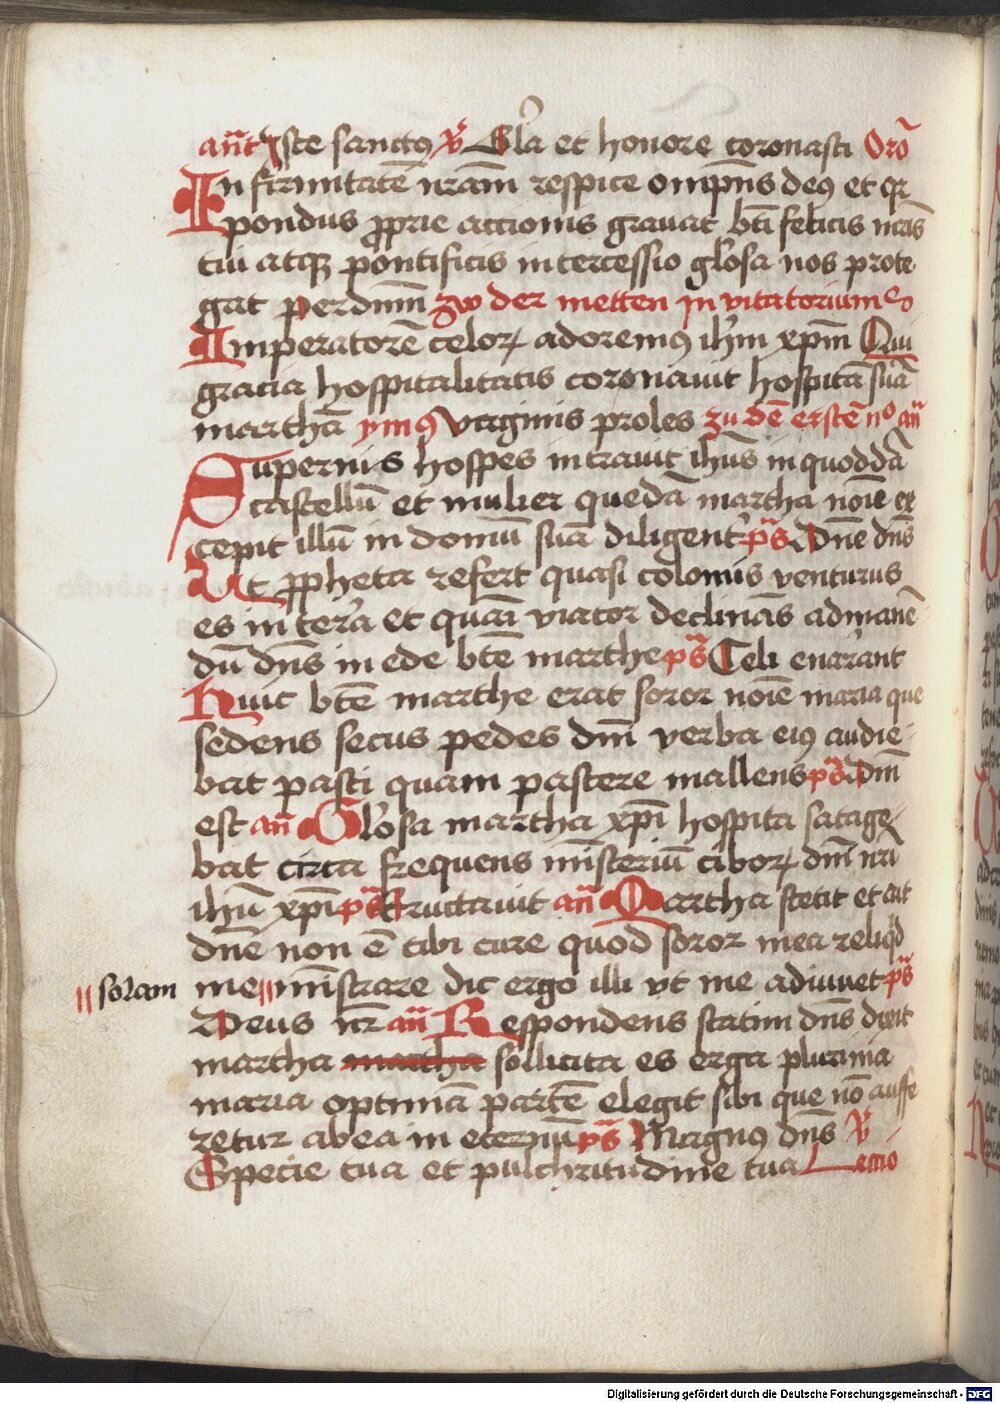 an̄t Iste sanctꝰ v̄ Gl'a et honore coronasti Orō
Infirmitatē nr̄am respice omp̄ns deꝰ et qr
pondus ꝓprie accionis grauat bt̄i felicis mr̄is
tui atqꝫ pontificis intercessio gl'osa nos prote
gat perdnm̄ zw der metten Inuitatorium
Imperatorē celoꝝ adoremꝰ ih'm xp̄m Qui
gracia hospitalitatis coronauit hospitā suā
marthā ymꝰ virginis proles zu dē erstē nº an̄
Supernis hospes intrauit ihūs in quoddā
castellū et mulier quedā martha noīe ex
cepit illū in domū suā diligent' pš Dn̄e dn̄s
Ut ꝓpheta refert quasi colonis venturus
es in terra et quasi viator declinās ad manē
dū dn̄s in ede bt̄e marthe pš Celi enarrant
Huic bt̄e marthe erat soror noīe maria que
sedens secus pedes dn̄i verba eiꝰ audie
bat pasti quam pascere mallens pš Dn̄i
est an̄ Gl'osa martha xp̄i hospita satage
bat circa frequens mīsteriū ciboꝝ dn̄i nr̄i
ihū xp̄i pš Eructauit an̄ Martha stetit et ait
dn̄e non ē tibi cure quod soror mea reliqd
me || mīstrare dic ergo illi vt me adiuuet pš
|| solam
Deus nr̄ an̄ Respondens statim dn̄s dixit
martha martha sollicita es erga plurima
maria optimā partē elegit sibi que nō auffe
retur ab ea in eternū pš Magnꝰ dn̄s v̄
Specie tua et pulchritudine tua Leccio
Digitalisierung gefördert durch die Deutsche Forschungsgemeinschaft - DFG